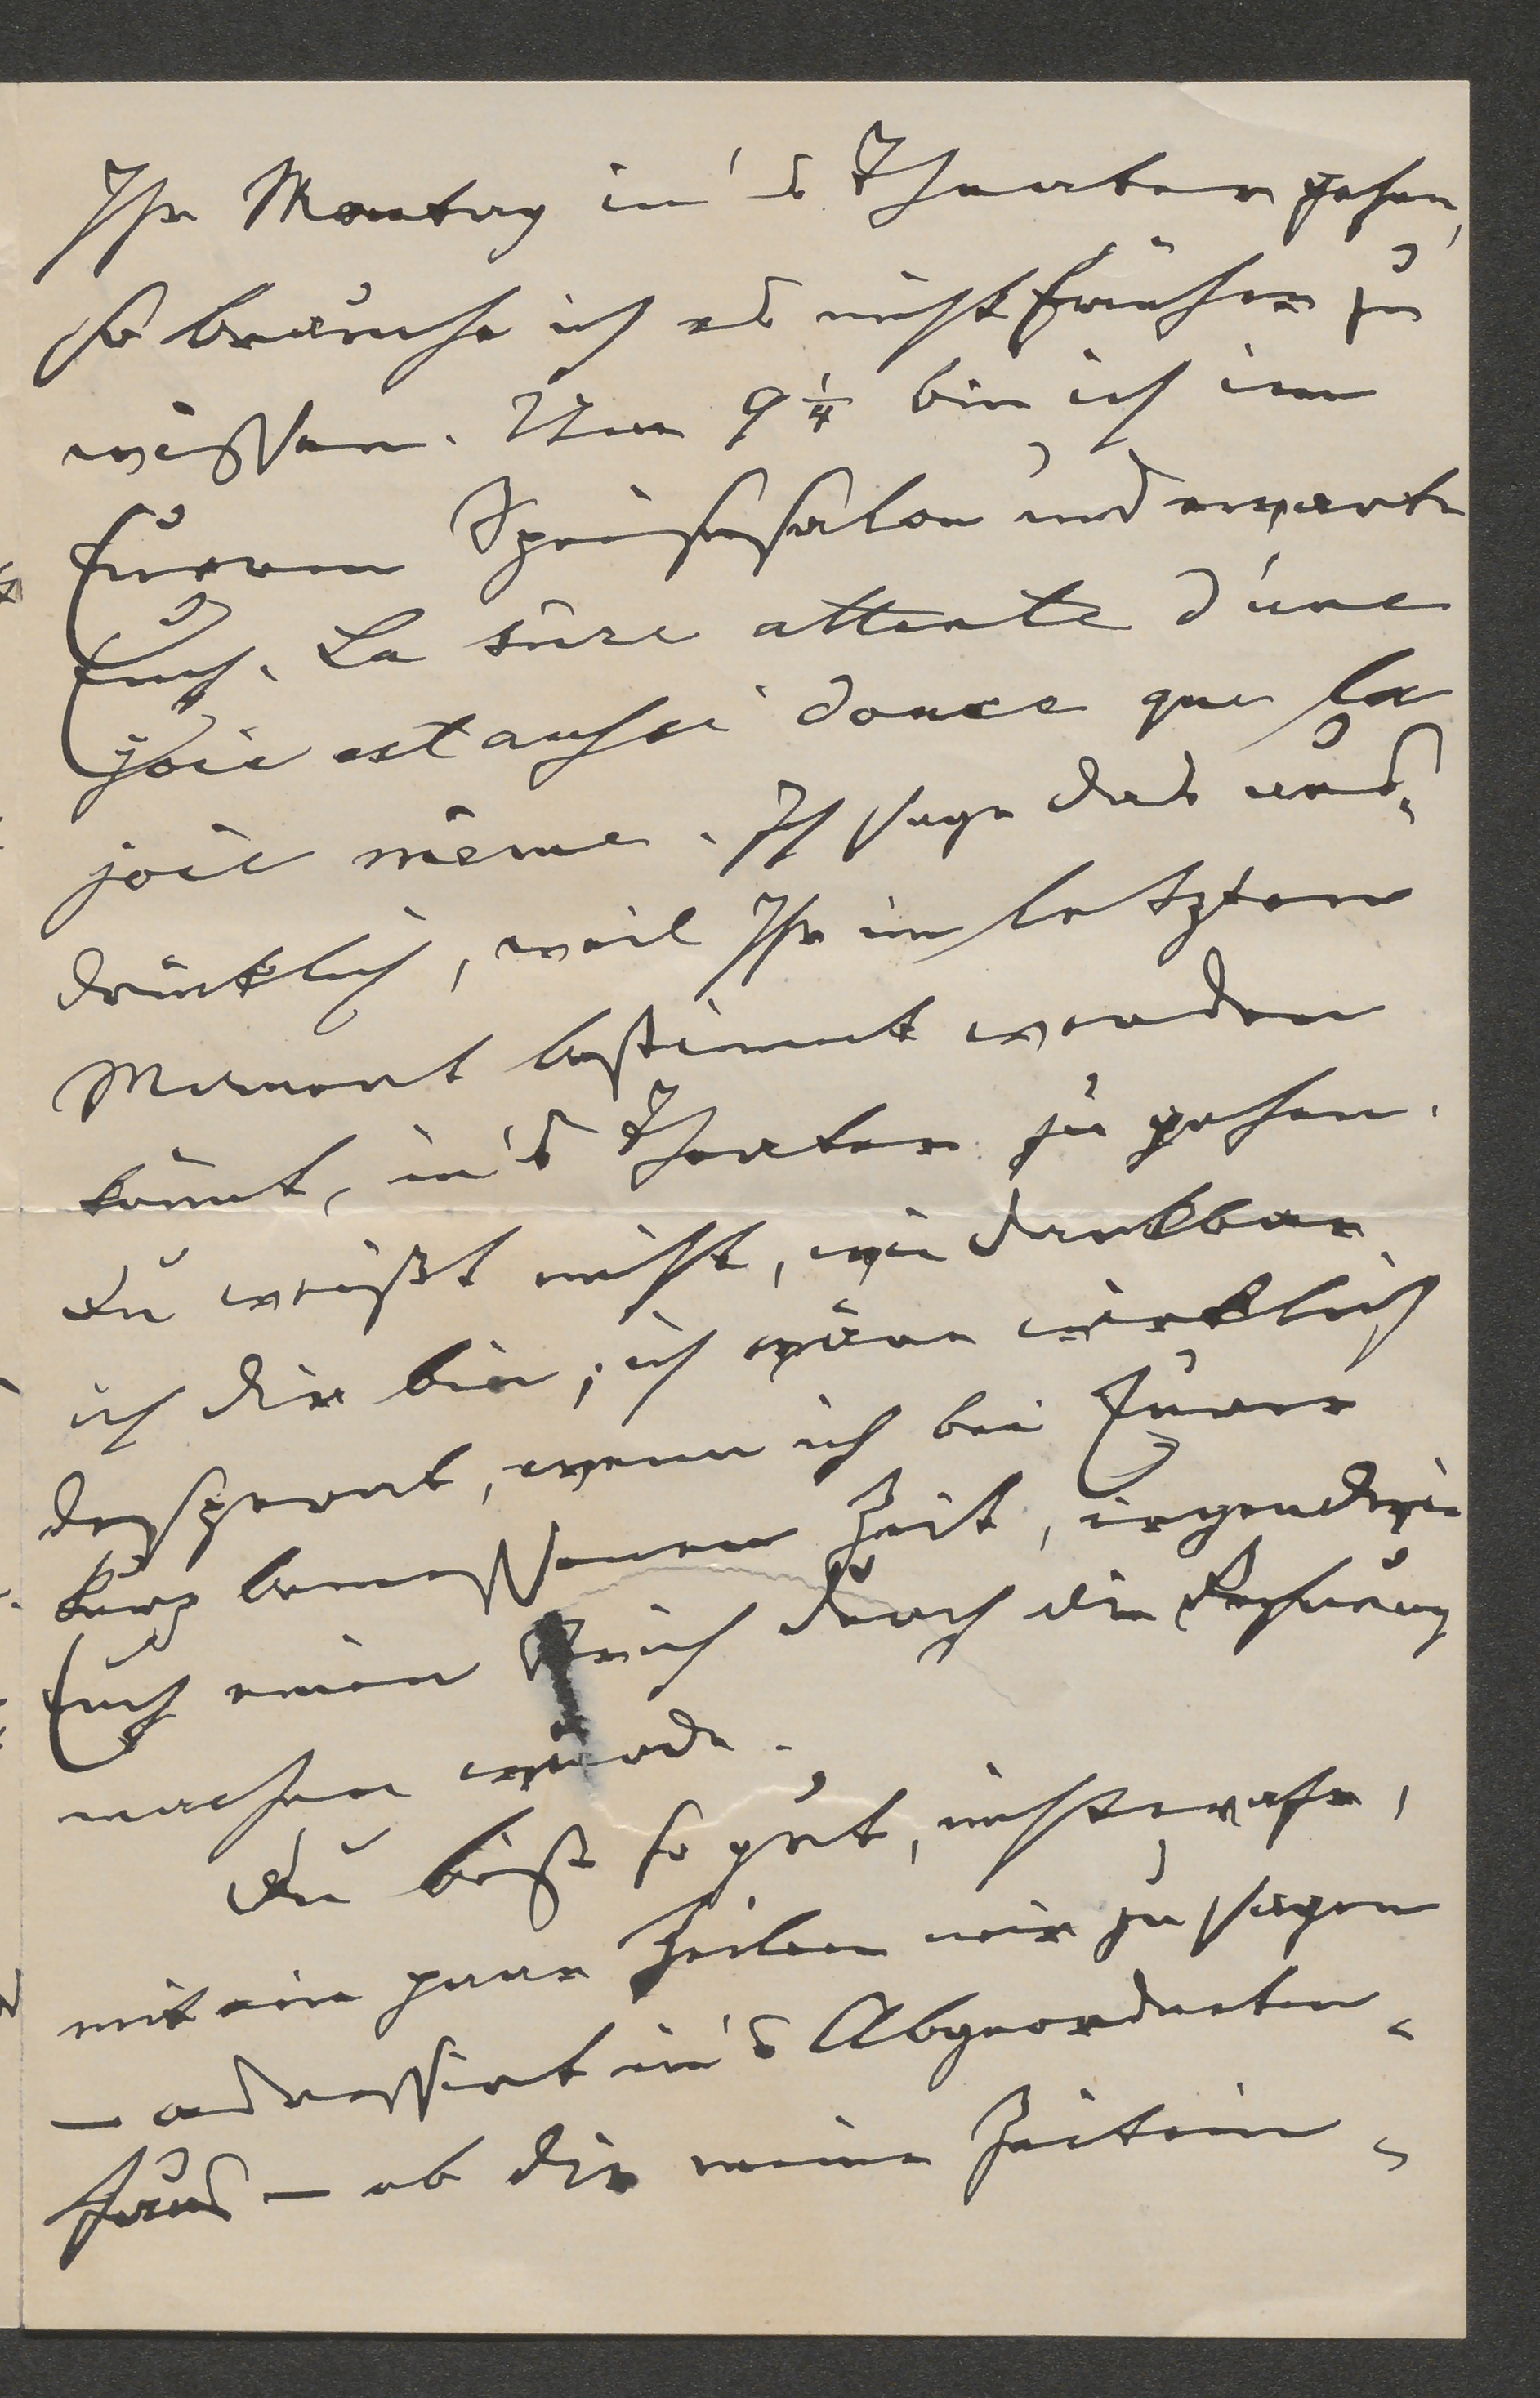 Ihr Montag in's Theater gehen,
so brauche ich es nicht früher zu
wissen. Um 9 1/4 bin ich im
Eurem Speisesalon und erwarte
Euch. La sûre attente d'une
joie est aussi douce que la
joie même. Ich sage das aus-
drücklich, weil Ihr im letzten
Moment bestimmt werden
könnt, in's Theater zu gehen.
Du weißt nicht, wie dankbar
ich dir bin; ich wäre wirklich
desperat, wenn ich bei Eurer
kurz bemessenen Zeit, irgendwie
Euch einen Strich durch die Rechnung
machen würde.
Du bist so gut, nicht wahr,
mit ein paar Zeilen mir zu sagen
— adressirt in's Abgeordneten-
haus — ob dir meine Zeitein-